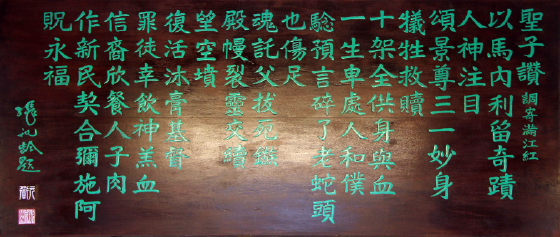 聖子讚 調寄滿江紅
以馬內利留奇蹟
人神注目
頌景尊三一妙身
犧牲救贖
十架全供身與血
一生車處人和僕
騐預言碎了老蛇頭
也傷足
魂託父拔死鏈
殿幔裂靈交續
望空墳
復活沐膏基督
罪徒幸飲神羔血
信裔欣餐人子肉
作新民契合彌施阿
貺永福